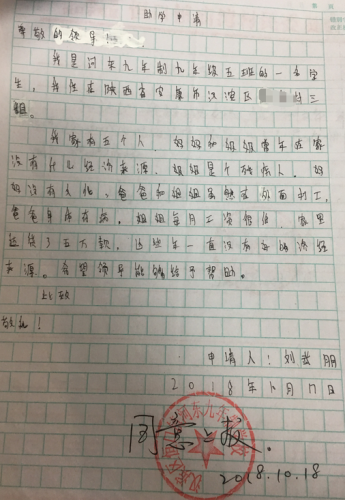 助学申请
尊敬的领导
我是河东九年制九年级五班的一名学
生，我住在陕西省安康市汉滨区 村三
组。
我家有五个人，妈妈和姐姐常年在家
没有什么经济来源，姐姐是个残疾人，妈
妈没有文化，爸爸和姐姐虽然在外面打工，
爸爸年年有病，姐姐每月工资 家里
还贷了五万款，这些年一直没有 经
来源。希望领导能够给予帮助。
此致
敬礼！
申请人：刘 朋
2018年10月17日
同意上报.
2018.10.18